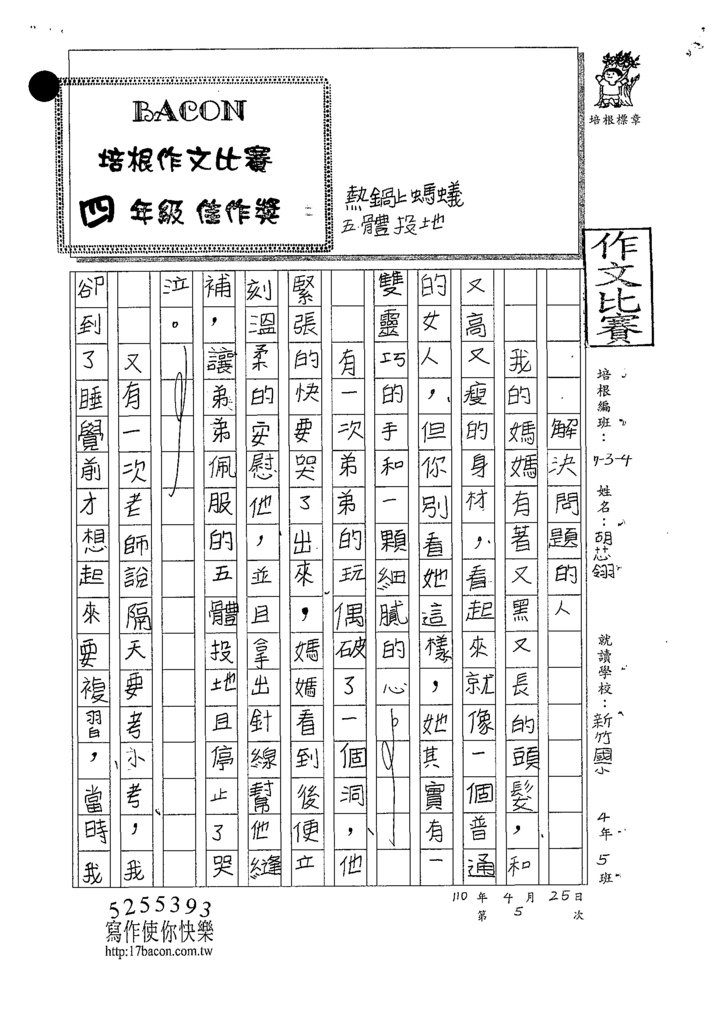 BACON
培根作文比賽
四年級 佳作獎
熱鍋上螞蟻
五體投地
培根標章
作文比賽
培根編班：7-3-4 姓名：胡芯翎 就讀學校：新竹國小 4年5班
解決問題的人
我的媽媽有著又黑又長的頭髮，和
又高又瘦的身材，看起來就像一個普通
的女人，但你別看她這樣，她其實有一
雙靈巧的手和一顆細膩的心。
有一次弟弟的玩偶破了一個洞，他
緊張的快要哭了出來，媽媽看到後便立
刻溫柔的安慰他，並且拿出針線幫他縫
補，讓弟弟佩服的五體投地且停止了哭
泣。
又有一次老師說隔天要考小考，我
卻到了睡覺前才想起來要複習，當時我
110年4月25日
第5次
5255393
寫作使你快樂
http:17bacon.com.tw